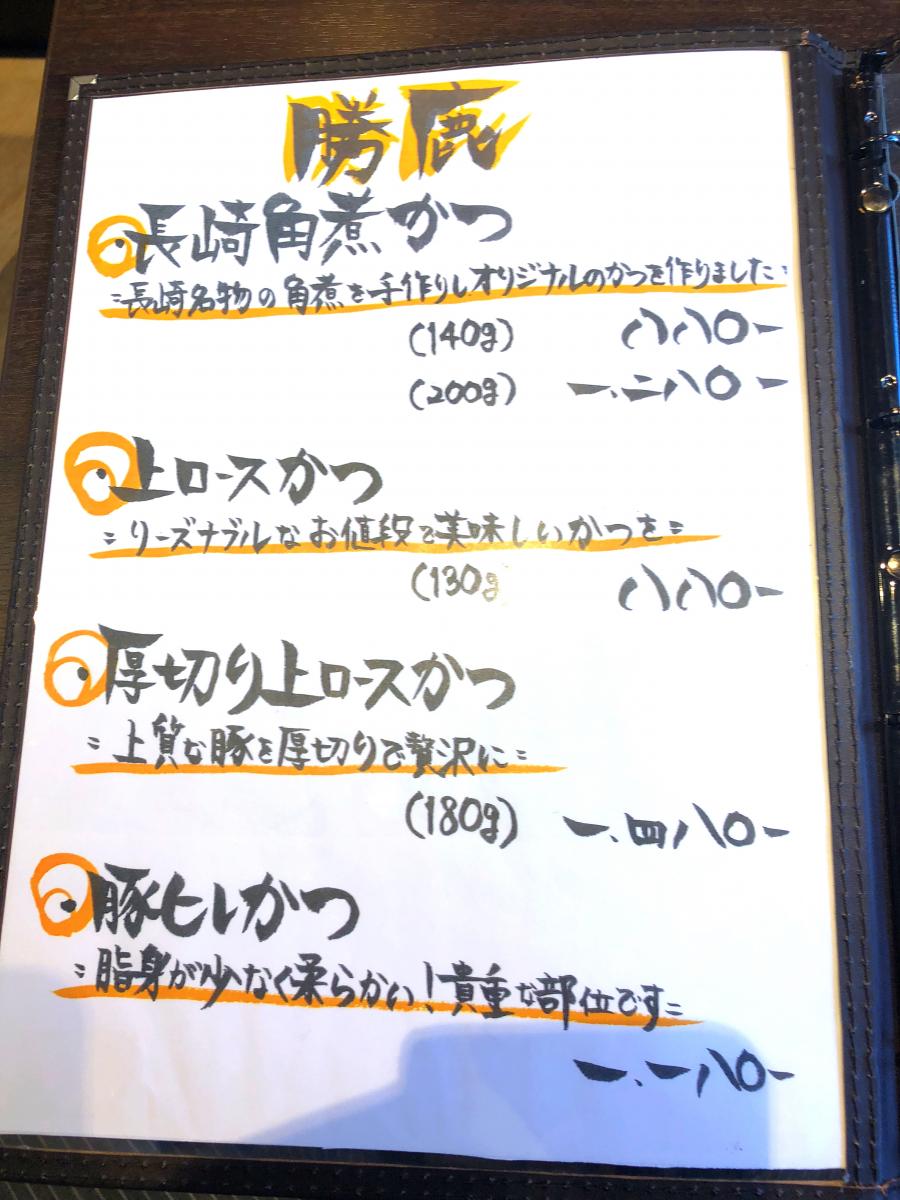 勝鹿
・長崎角煮かつ
=長崎名物の角煮を手作りしオリジナルのかつを作りました=
(140g) 八八〇ー
(200g) 一、二八〇ー
・上ロースかつ
=リーズナブルなお値段で美味しいかつを=
(130g 八八〇ー
・厚切り上ロースかつ
=上質な豚を厚切りで贅沢に=
(180g) 一、四八〇ー
・豚ヒレかつ
=脂身が少なく柔らかい!貴重な部位です=
一、一八〇ー